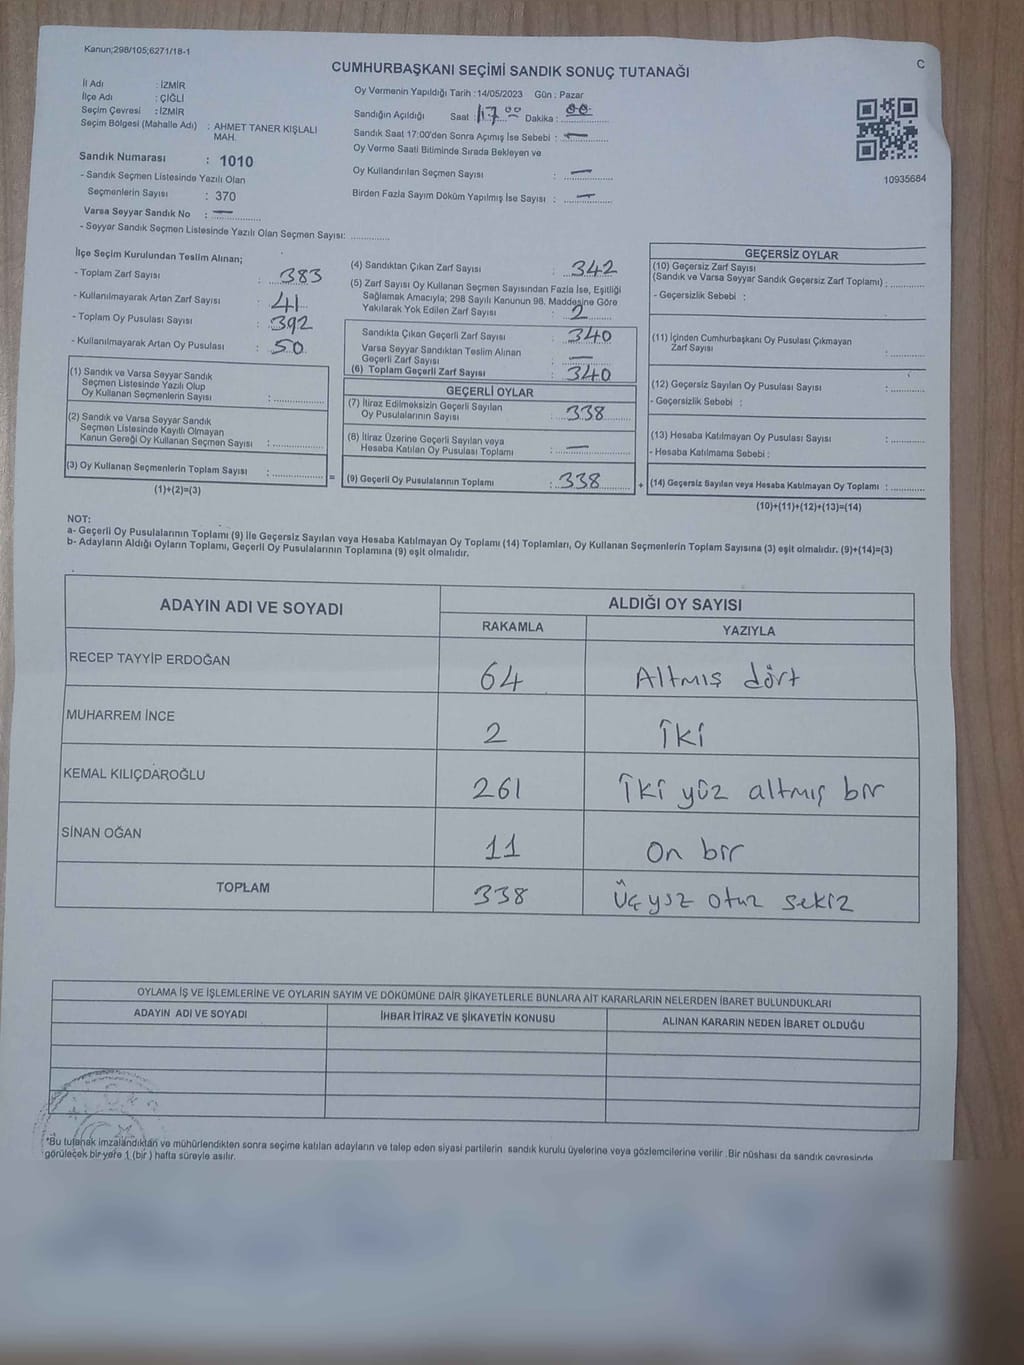 Kanun;298/105;6271/18-1
C
CUMHURBAŞKANI SEÇİMİ SANDIK SONUÇ TUTANAĞI
İl Adı : İZMİR
İlçe Adı : ÇİĞLİ
Seçim Çevresi : İZMİR
Seçim Bölgesi (Mahalle Adı) : AHMET TANER KIŞLALI MAH.
Sandık Numarası : 1010
- Sandık Seçmen Listesinde Yazılı Olan
Seçmenlerin Sayısı : 370
Varsa Seyyar Sandık No : —
- Seyyar Sandık Seçmen Listesinde Yazılı Olan Seçmen Sayısı: ..............
Oy Vermenin Yapıldığı Tarih :14/05/2023 Gün : Pazar
Sandığın Açıldığı Saat : 17 00 Dakika : 00
Sandık Saat 17:00'den Sonra Açımış İse Sebebi : —
Oy Verme Saati Bitiminde Sırada Bekleyen ve
Oy Kullandırılan Seçmen Sayısı : —
Birden Fazla Sayım Döküm Yapılmış İse Sayısı : —
10935684
İlçe Seçim Kurulundan Teslim Alınan;
- Toplam Zarf Sayısı : 383
- Kullanılmayarak Artan Zarf Sayısı : 41
- Toplam Oy Pusulası Sayısı : 392
- Kullanılmayarak Artan Oy Pusulası : 50
(1) Sandık ve Varsa Seyyar Sandık
Seçmen Listesinde Yazılı Olup
Oy Kullanan Seçmenlerin Sayısı : ..............
(2) Sandık ve Varsa Seyyar Sandık
Seçmen Listesinde Kayıtlı Olmayan
Kanun Gereği Oy Kullanan Seçmen Sayısı : ..............
(3) Oy Kullanan Seçmenlerin Toplam Sayısı : ..............
(1)+(2)=(3)
=
(4) Sandıktan Çıkan Zarf Sayısı : 342
(5) Zarf Sayısı Oy Kullanan Seçmen Sayısından Fazla İse, Eşitliği
Sağlamak Amacıyla; 298 Sayılı Kanunun 98. Maddesine Göre
Yakılarak Yok Edilen Zarf Sayısı : 2
Sandıkta Çıkan Geçerli Zarf Sayısı : 340
Varsa Seyyar Sandıktan Teslim Alınan
Geçerli Zarf Sayısı : —
(6) Toplam Geçerli Zarf Sayısı : 340
GEÇERLİ OYLAR
(7) İtiraz Edilmeksizin Geçerli Sayılan
Oy Pusulalarının Sayısı : 338
(8) İtiraz Üzerine Geçerli Sayılan veya
Hesaba Katılan Oy Pusulası Toplamı : —
(9) Geçerli Oy Pusulalarının Toplamı : 338
+
GEÇERSİZ OYLAR
(10) Geçersiz Zarf Sayısı
(Sandık ve Varsa Seyyar Sandık Geçersiz Zarf Toplamı) : ..............
- Geçersizlik Sebebi :
(11) İçinden Cumhurbaşkanı Oy Pusulası Çıkmayan
Zarf Sayısı : ..............
(12) Geçersiz Sayılan Oy Pusulası Sayısı : ..............
- Geçersizlik Sebebi :
(13) Hesaba Katılmayan Oy Pusulası Sayısı : ..............
- Hesaba Katılmama Sebebi :
(14) Geçersiz Sayılan veya Hesaba Katılmayan Oy Toplamı : ..............
(10)+(11)+(12)+(13)=(14)
NOT:
a- Geçerli Oy Pusulalarının Toplamı (9) ile Geçersiz Sayılan veya Hesaba Katılmayan Oy Toplamı (14) Toplamları, Oy Kullanan Seçmenlerin Toplam Sayısına (3) eşit olmalıdır. (9)+(14)=(3)
b- Adayların Aldığı Oyların Toplamı, Geçerli Oy Pusulalarının Toplamına (9) eşit olmalıdır.
ADAYIN ADI VE SOYADI ALDIĞI OY SAYISI
RAKAMLA YAZIYLA
RECEP TAYYİP ERDOĞAN 64 Altmış dört
MUHARREM İNCE 2 İki
KEMAL KILIÇDAROĞLU 261 İki yüz altmış bir
SİNAN OĞAN 11 On bir
TOPLAM 338 Üç yüz otuz sekiz
OYLAMA İŞ VE İŞLEMLERİNE VE OYLARIN SAYIM VE DÖKÜMÜNE DAİR ŞİKAYETLERLE BUNLARA AİT KARARLARIN NELERDEN İBARET BULUNDUKLARI
ADAYIN ADI VE SOYADI İHBAR İTİRAZ VE ŞİKAYETİN KONUSU ALINAN KARARIN NEDEN İBARET OLDUĞU
*Bu tutanak imzalandıktan ve mühürlendikten sonra seçime katılan adayların ve talep eden siyasi partilerin sandık kurulu üyelerine veya gözlemcilerine verilir .Bir nüshası da sandık çevresinde
görülecek bir yere 1 (bir ) hafta süreyle asılır.